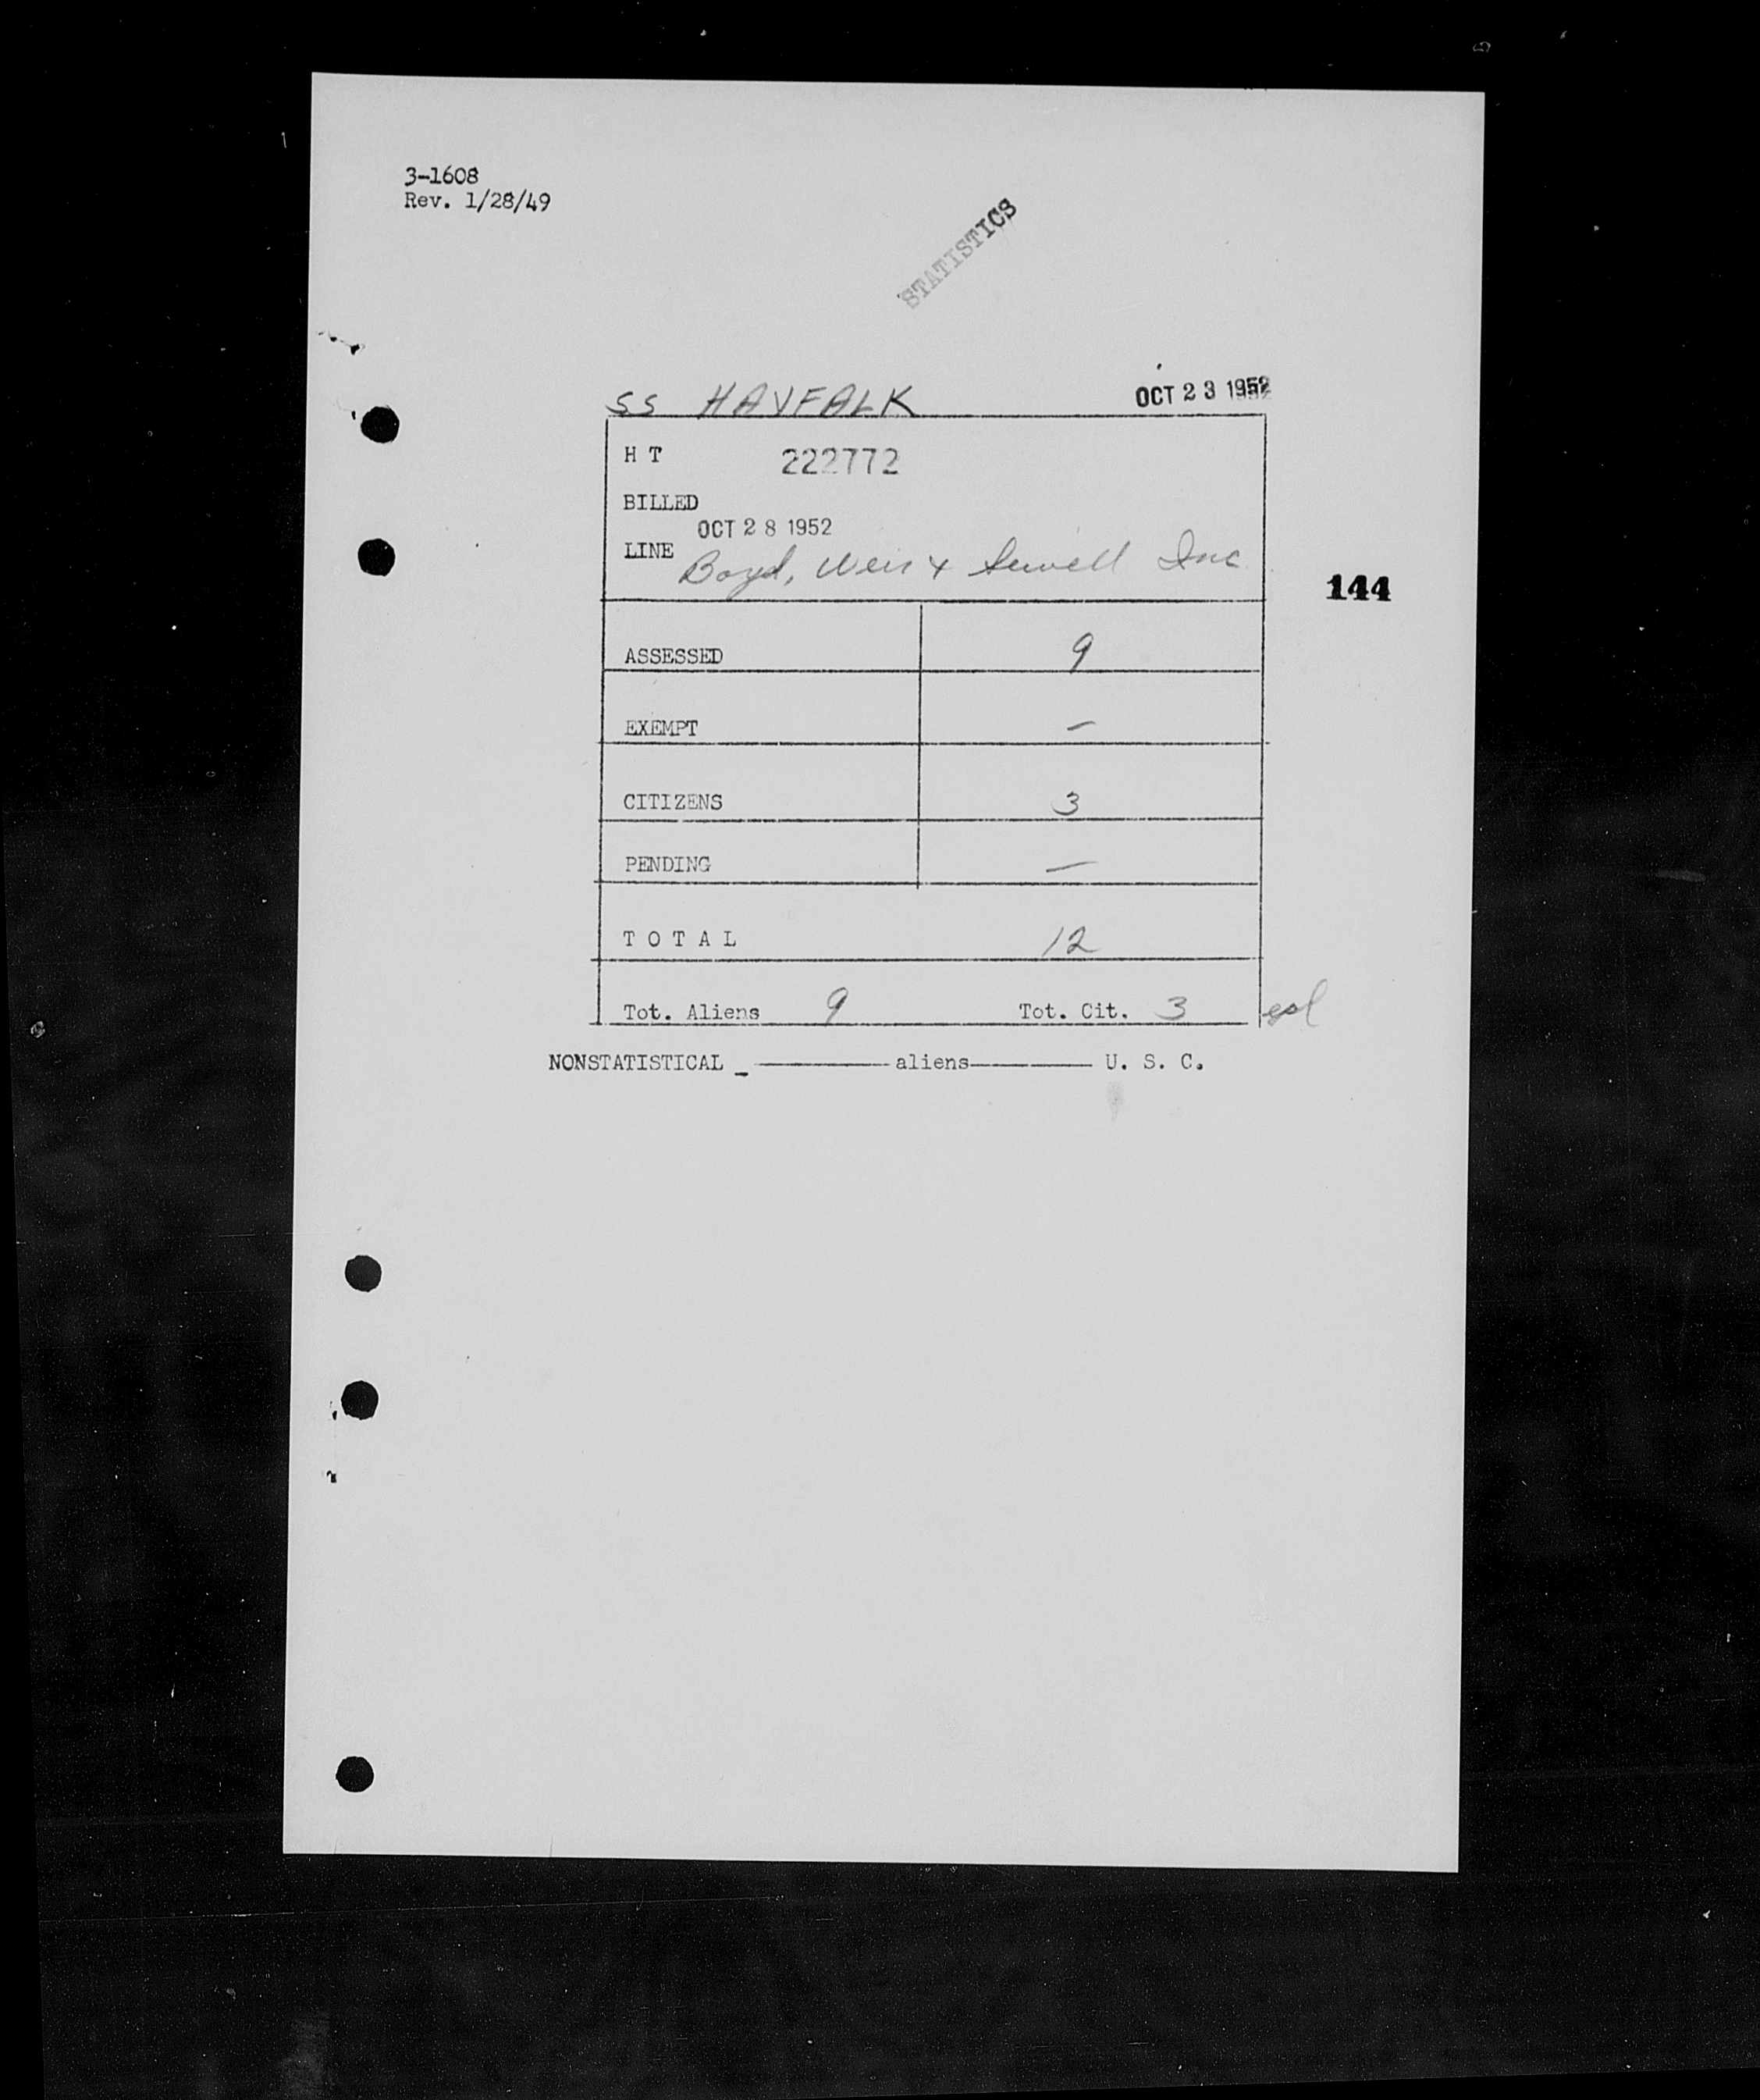 3-1608
Rev. 1/28/49
STATISTICS
SS HAVFALK OCT 23 1952
H T 222772
BILLED
OCT 28 1952
LINE Boyd, Weir & Sewell Inc
144
ASSESSED 9
EXEMPT —
CITIZENS 3
PENDING —
T O T A L 12
Tot. Aliens 9 Tot. Cit. 3
NONSTATISTICAL _ ———— aliens———— U. S. C.